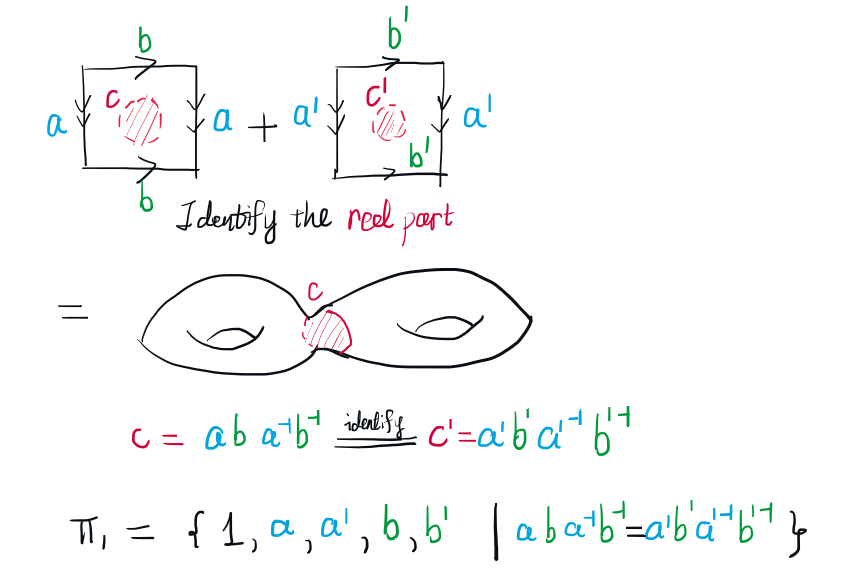 b b'
c c'
a a + a' a'
b b'
Identify the reel part
c
=
c = a b a⁻¹ b⁻¹ identify c' = a' b' a'⁻¹ b'⁻¹
π₁ = { 1, a, a', b, b' | a b a⁻¹ b⁻¹ = a' b' a'⁻¹ b'⁻¹ }